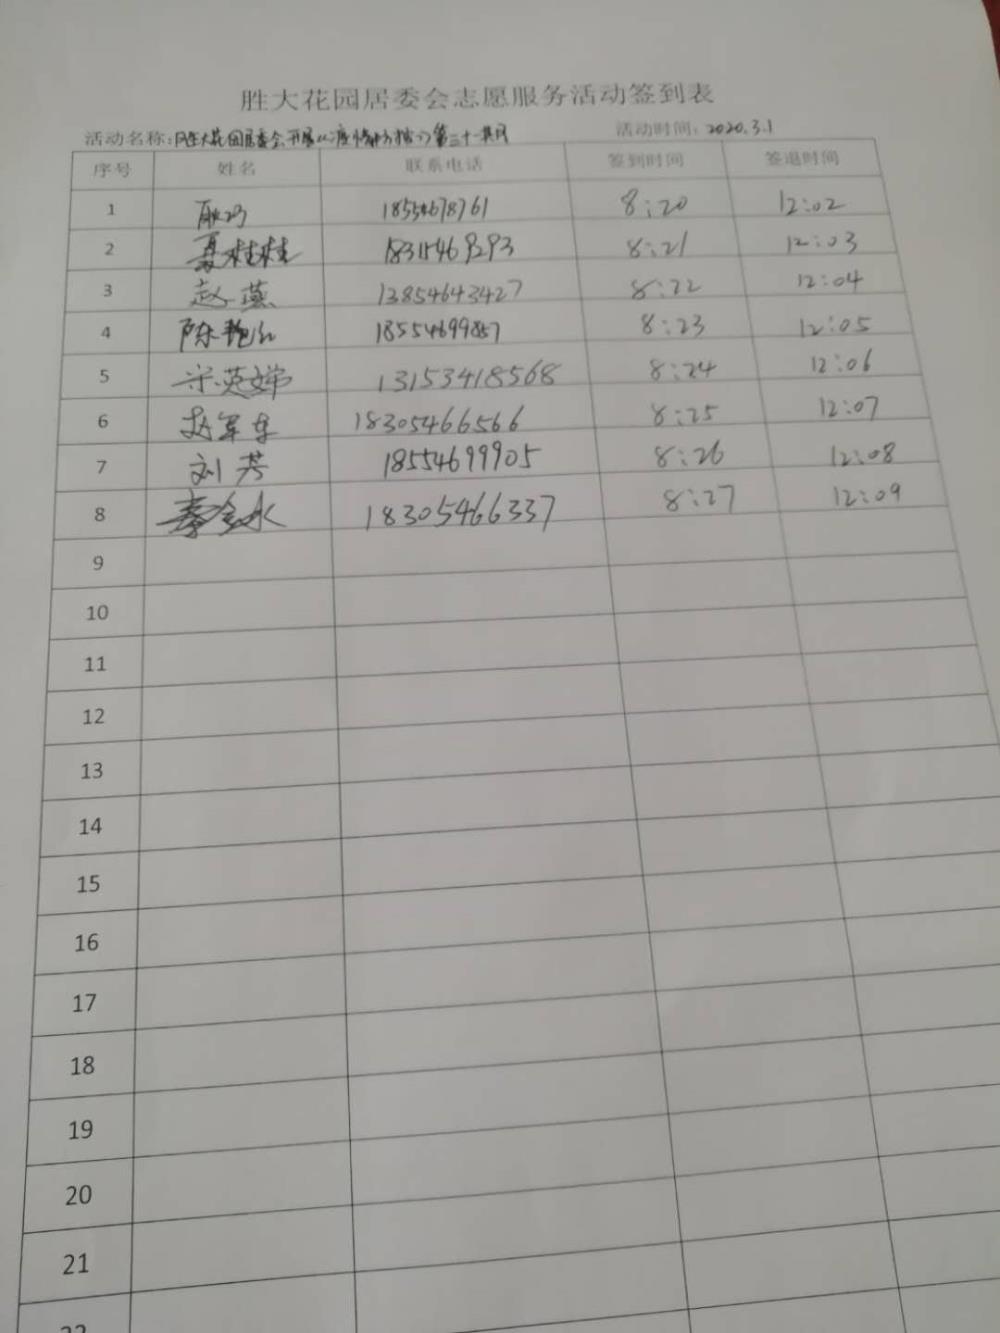 胜大花园居委会志愿服务活动签到表
活动名称:胜大花园居委会开展"疫情防控"第三十一期 活动时间:2020.3.1
序号 姓名 联系电话 签到时间 签退时间
1 18554678761 8:20 12:02
2 夏桂桂 8:21 12:03
3 赵燕 13854643427 8:22 12:04
4 陈艳红 18554699857 8:23 12:05
5 宋英娣 13153418568 8:24 12:06
6 赵军 18305466566 8:25 12:07
7 刘芳 18554699905 8:26 12:08
8 秦金水 18305466337 8:27 12:09
9
10
11
12
13
14
15
16
17
18
19
20
21
22